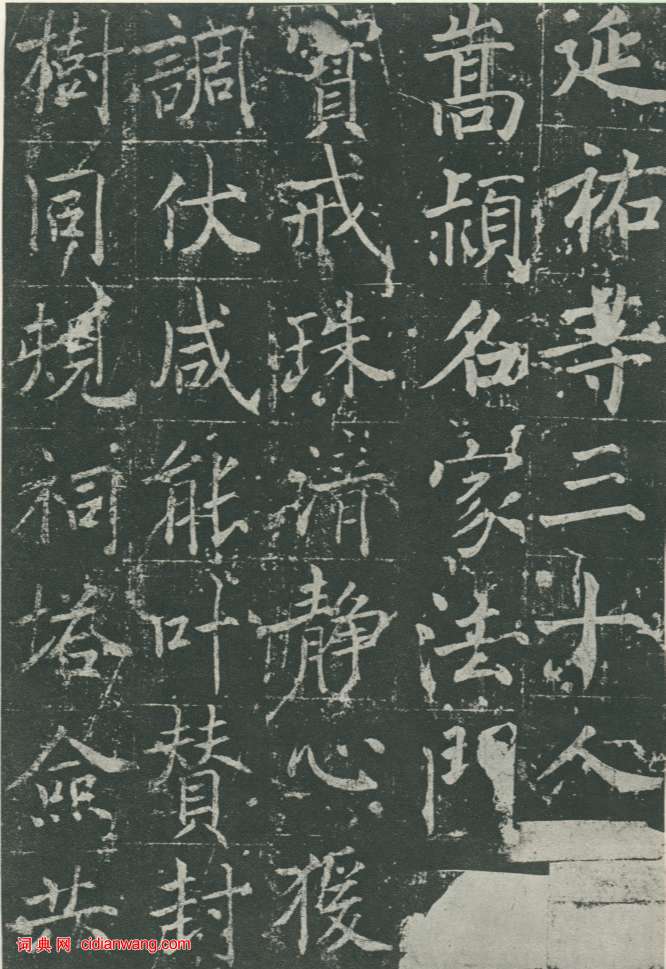 延祐等三十人
嵩潁名家法門
寶戒珠清靜心猨
調伏咸能叶贊封
樹同規祠塔僉共
词典网 cidianwang.com